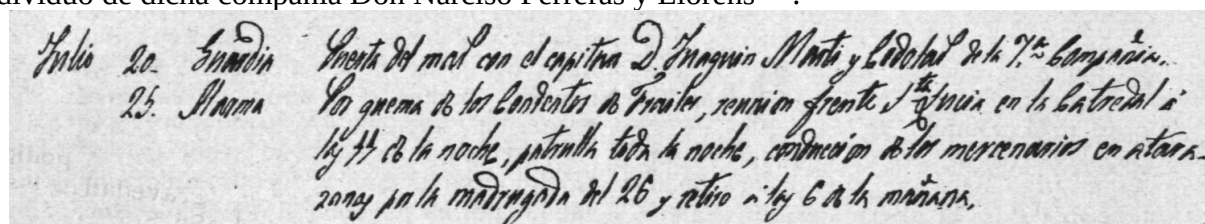 dividuo de dicha compañía Don Narciso Ferreras y Llorens
Julio 20. Guardia Puerta del mar con el capitan D. Juaquin Marti y Codolar de la 7.ª Compañia.
25. Alarma Por quema de los Conventos de Frailes, reunion frente S.ta Lucia en la Catredal á
las 11 de la noche, patrulla toda la noche, conduccion de los mercenarios en atara-
zanas por la madrugada del 26 y retiro á las 6 de la mañana.